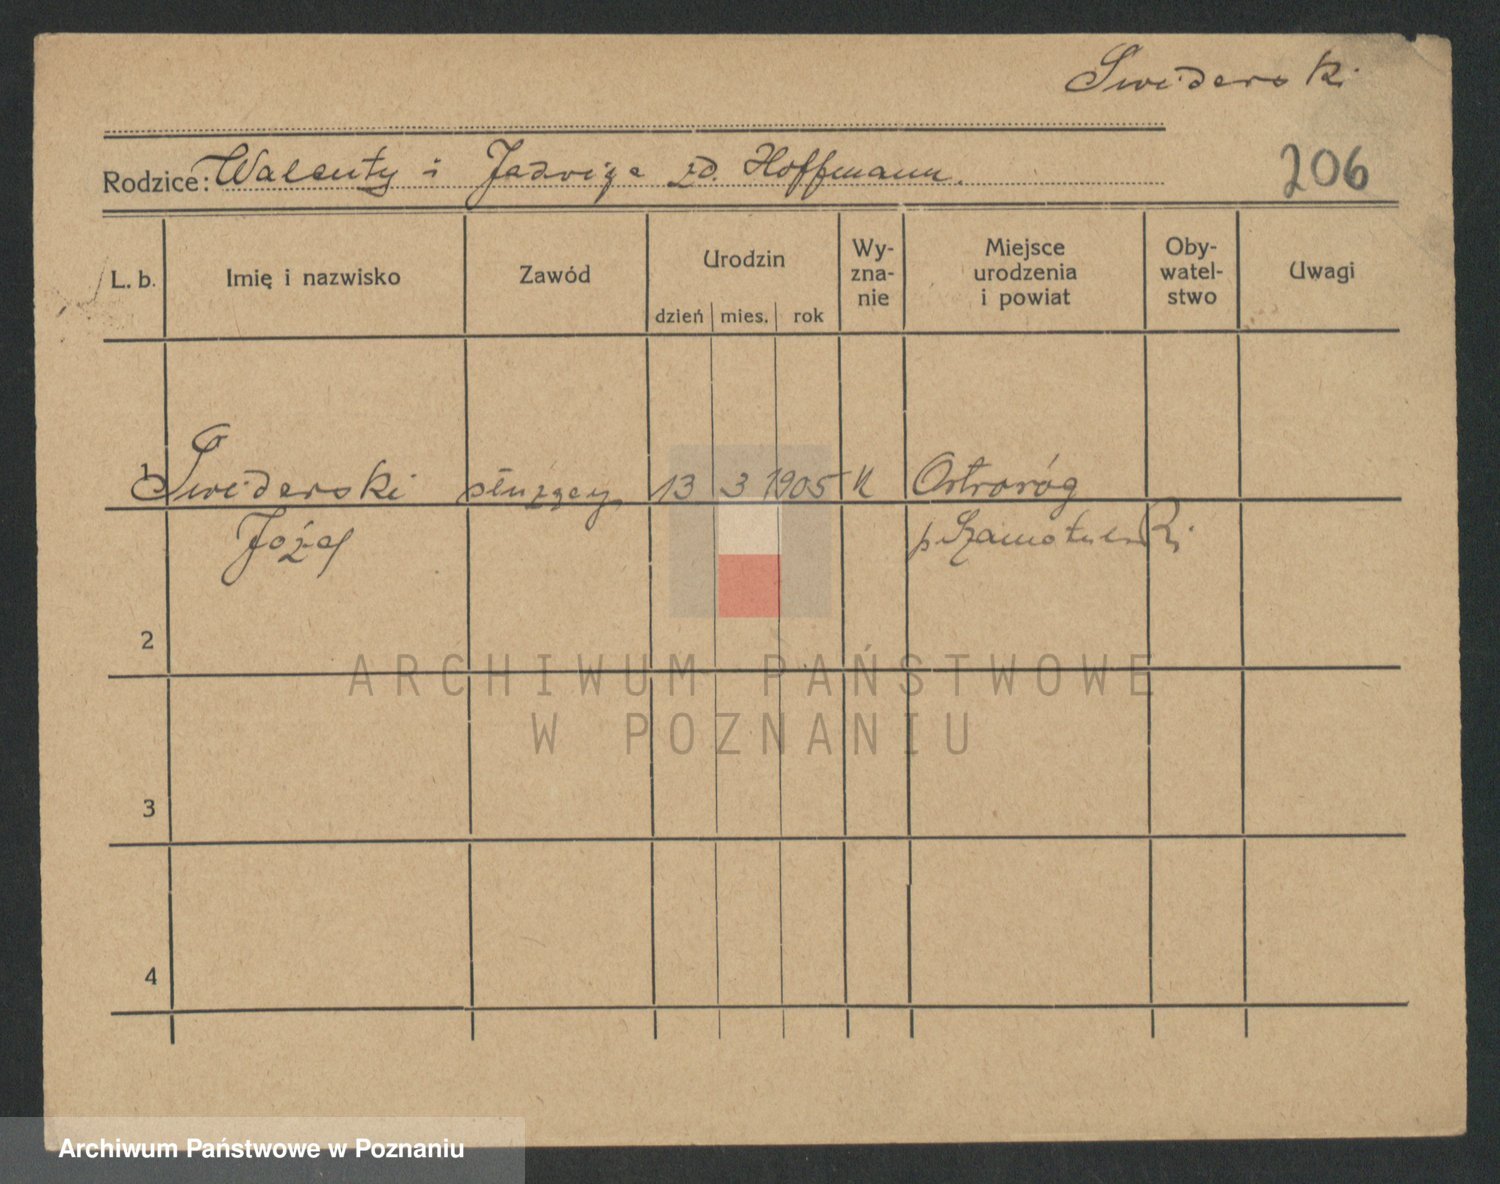 Swiderski
Rodzice: Walenty i Jadwiga zd. Hoffmann.
206
L. b. Imię i nazwisko Zawód Urodzin dzień mies. rok Wy-zna-nie Miejsce urodzenia i powiat Oby-watel-stwo Uwagi
1 Swiderski służący 13 3 1905 k Ostroróg
Józef p. Szamotulski
2
ARCHIWUM PAŃSTWOWE
W POZNANIU
3
4
Archiwum Państwowe w Poznaniu